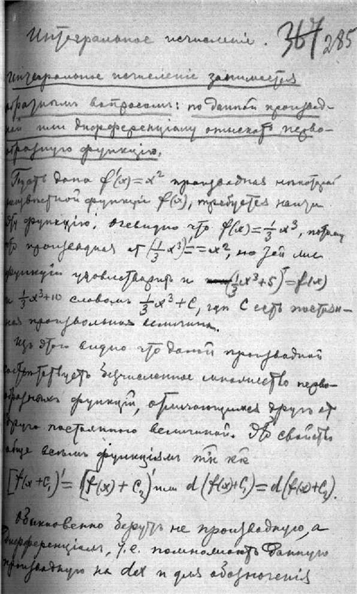 Интегральное исчисление. 367 285
Интегральное исчисление занимается
образным вопросам: по данной производ-
ной или дифференциалу отыскать перво-
образную функцию.
Пусть дана f'(x)=x² производная некоторой
функции f(x), требуется найти
эту функцию. Очевидно что f(x)=⅓x³, потому
что производная от (⅓x³)'=x², но той же
функции удовлетворит и (⅓x³+5)'=f'(x)
и ⅓x³+10 словом ⅓x³+C, где C есть постоян-
ная произвольная величина.
Из этого видно что данной производной
соответствует бесчисленное множество перво-
образных функций, отличающихся друг от
друга постоянной величиной. Это свойство
обще всем функциям тк кк
[f(x)+C₁]'=[f(x)+C₂]' или d(f(x)+C₁)=d(f(x)+C₂).
Обыкновенно берут не производную, а
дифференциал, т.е. помножают данную
производную на dx и для обозначения